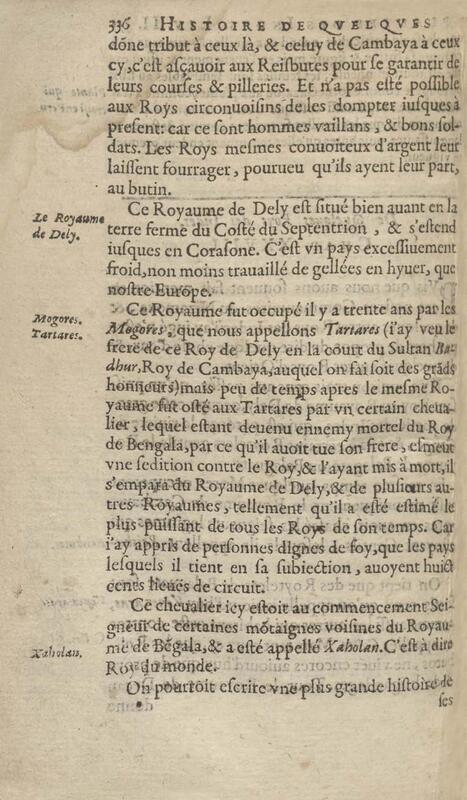 336 HISTOIRE DE QVELQVES
dōne tribut à ceux là, & celuy de Cambaya à ceux
cy, c'est asçauoir aux Reisbutes pour se garantir de
leurs courses & pilleries. Et n'a pas esté possible
aux Roys circonuoisins de les dompter iusques à
present: car ce sont hommes vaillans, & bons sol-
dats. Les Roys mesmes conuoiteux d'argent leur
laissent fourrager, pourueu qu'ils ayent leur part,
au butin.
Le Royaume
de Dely.
Ce Royaume de Dely est situé bien auant en la
terre ferme du Costé du Septentrion, & s'estend
iusques en Corasone. C'est vn pays excessiuement
froid, non moins trauaillé de gellées en hyuer, que
nostre Europe.
Mogores.
Tartares.
Ce Royaume fut occupé il y a trente ans par les
Mogores, que nous appellons Tartares (i'ay veu le
frere de ce Roy de Dely en la court du Sultan Ba-
dhur, Roy de Cambaya, auquel on fai soit des grāds
honneurs) mais peu de temps apres le mesme Ro-
yaume fut osté aux Tartares par vn certain cheua-
lier, lequel estant deuenu ennemy mortel du Roy
de Bengala, par ce qu'il auoit tue son frere, esmeut
vne sedition contre le Roy, & l'ayant mis à mort, il
s'empara du Royaume de Dely, & de plusieurs au-
tres Royaumes, tellement qu'il a esté estimé le
plus puissant de tous les Roys de son temps. Car
i'ay appris de personnes dignes de foy, que les pays
lesquels il tient en sa subiection, auoyent huict
cents lieues de circuit.
Ce cheualier icy estoit au commencement Sei-
gneur de certaines mōtaignes voisines du Royau-
Xaholan.
me de Bēgala, & a esté appellé Xaholan. C'est à dire
Roy du monde.
On pourroit escrire vne plus grande histoire de
ses